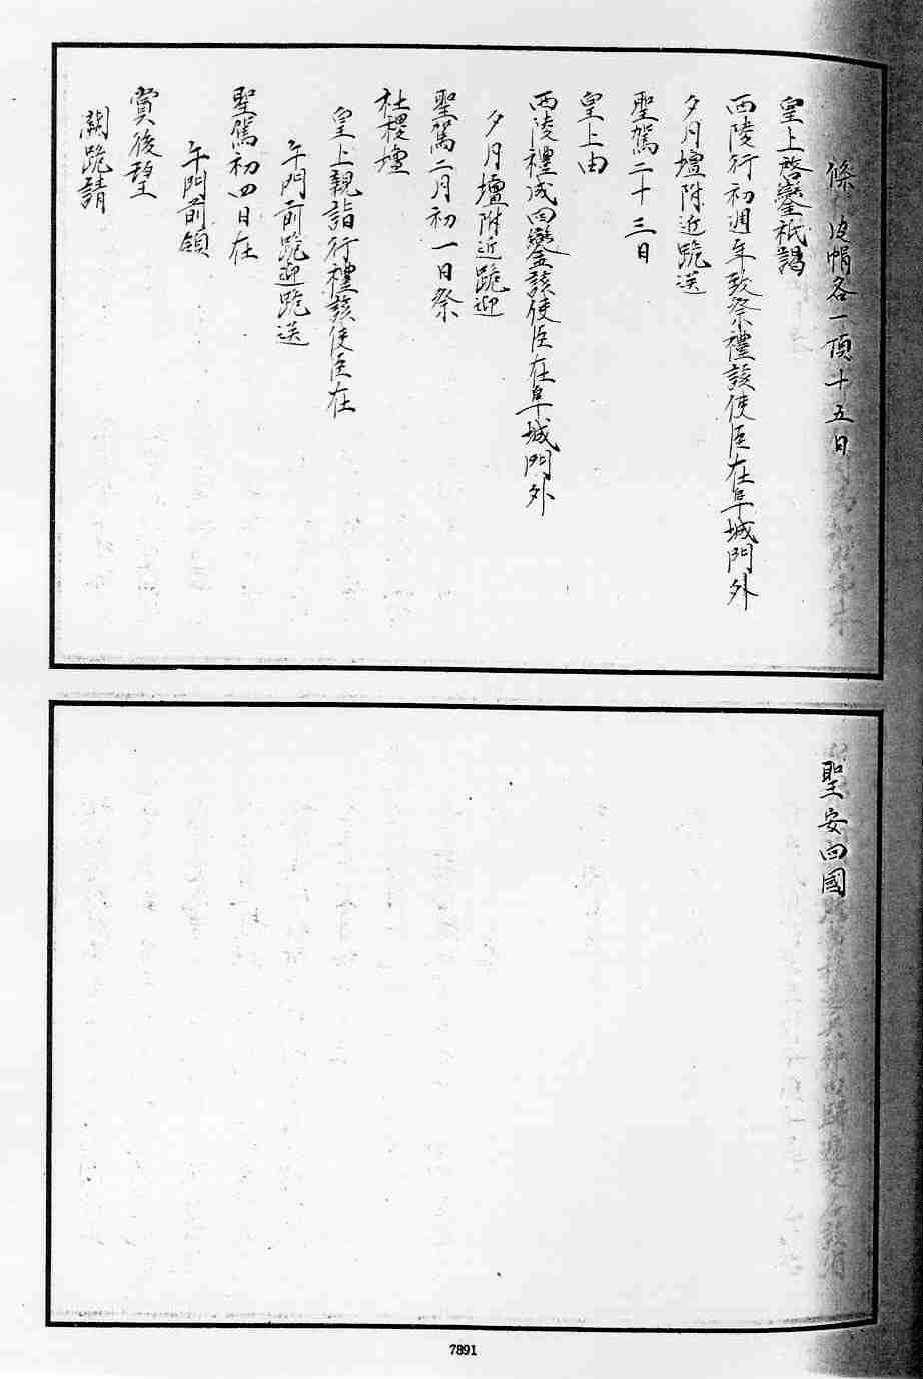 條皮帽各一頂十五日
皇上啓鑾祇謁
西陵行初週年致祭禮該使臣在阜城門外
夕月壇附近跪送
聖駕二十三日
皇上由
西陵禮成回鑾該使臣在阜城門外
夕月壇附近跪迎
聖駕二月初一日祭
社稷壇
皇上親詣行禮該使臣在
午門前跪迎跪送
聖駕初四日在
午門前領
賞後望
闕跪請
聖安回國
7891